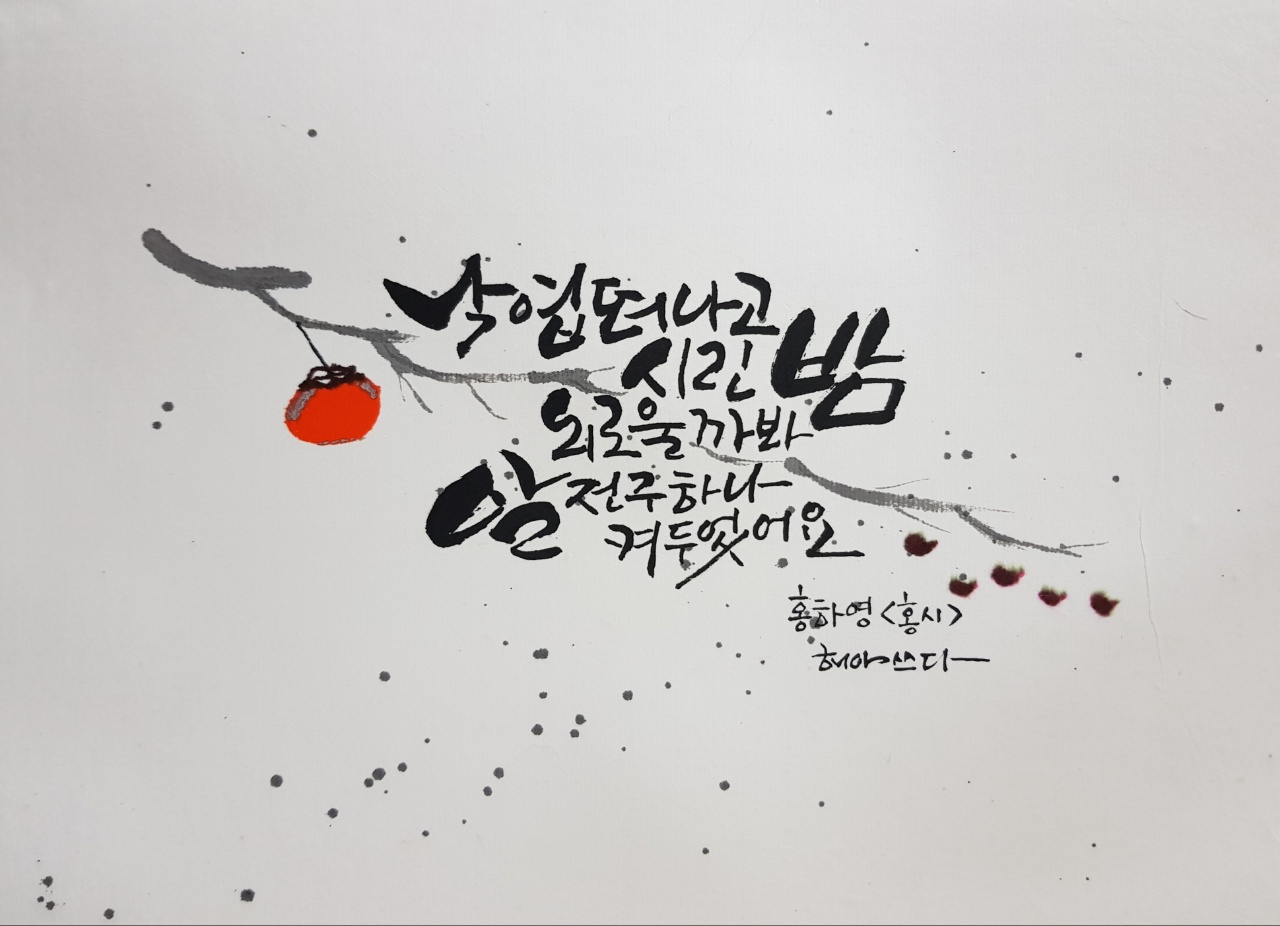 낙엽떠나고
시린 밤
외로울까봐
알전주하나
켜두었어요
홍하영 <홍시>
혜야쓰다